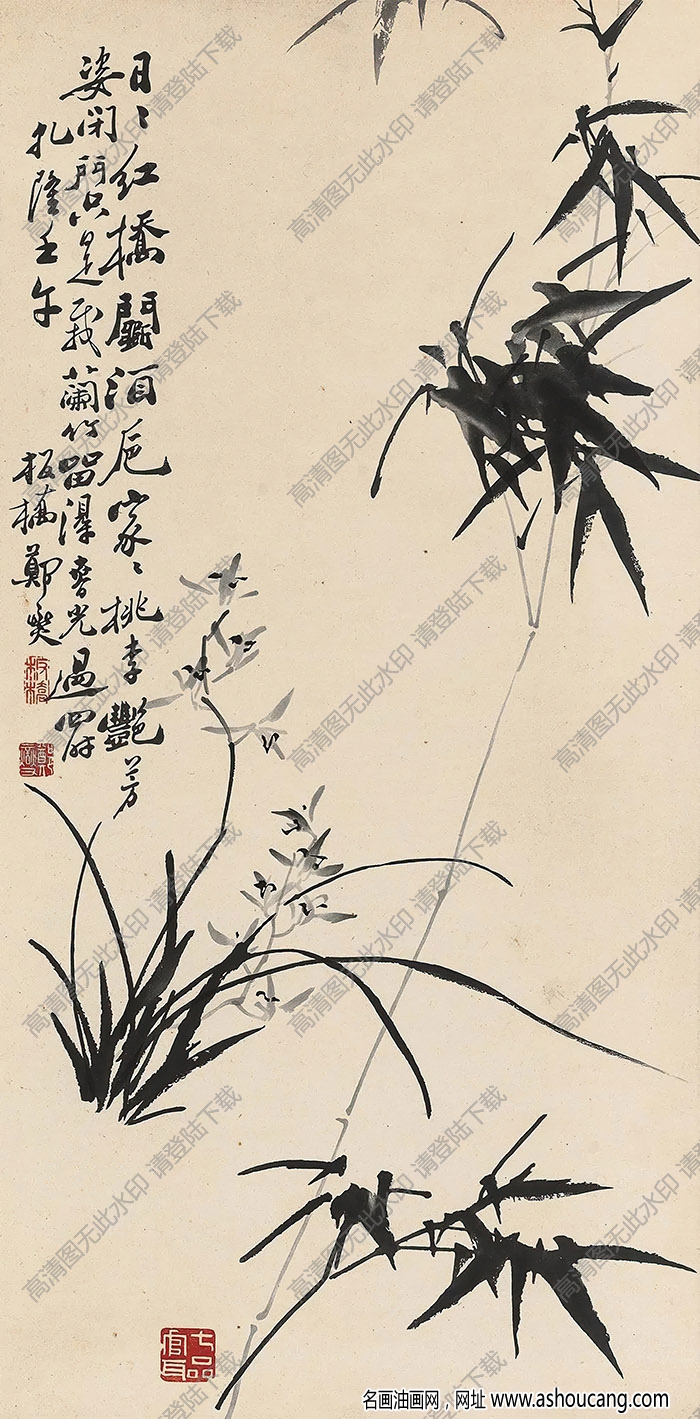 日〻紅橋鬪酒卮家〻桃李艷芳
姿閉門只是栽蘭竹留得春光過四时
乾隆壬午
板橋鄭燮
板橋
七品官耳
高清图无此水印 请登陆下载
名画油画网，网址 www.ashoucang.com